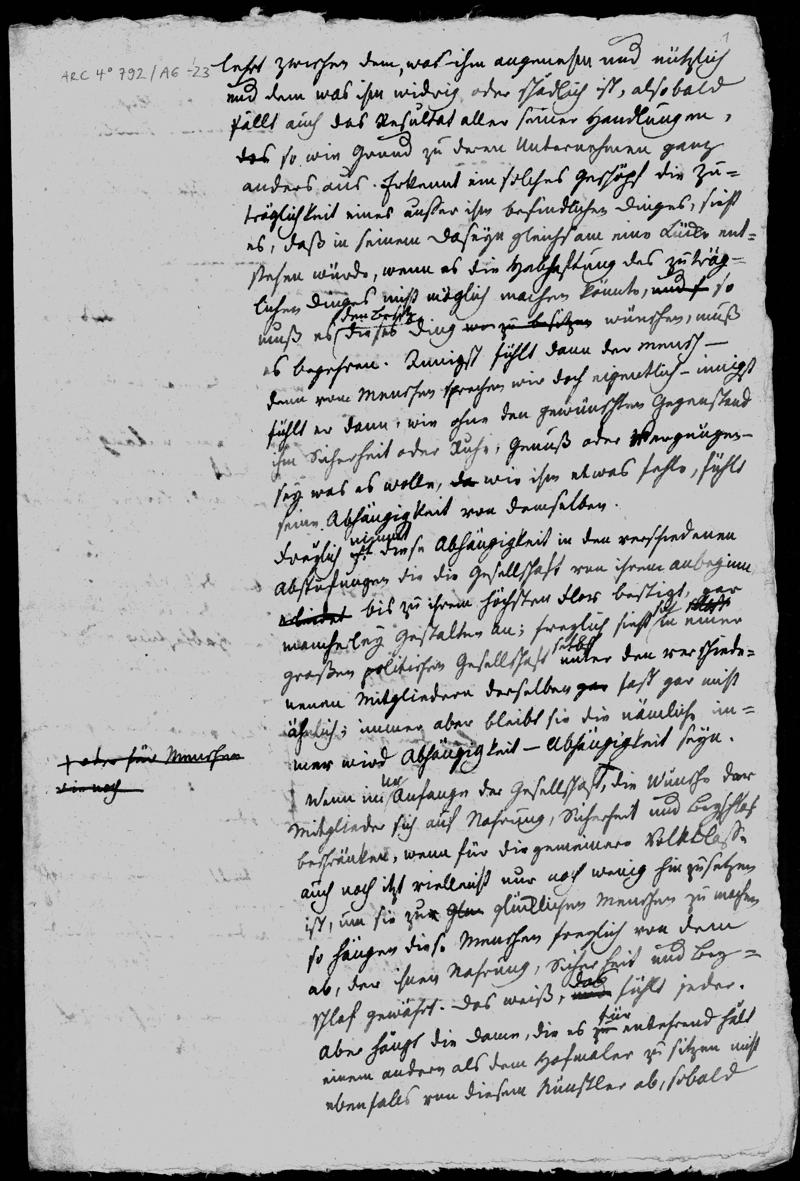 ARC 4° 792/A6-23
1
lehrt zwischen dem, was ihm angenehm und nützlich
und dem was ihm widrig oder schädlich ist, alsobald
fällt auch das Resultat aller seiner Handlungen,
das so wie Grund zu deren Unternehmen ganz
anders aus. Erkennt ein solches Geschöpf die Zu=
träglichkeit eines ausser ihm befindlichen Dinges, sieht
es, daß in seinem Daseyn gleichsam eine Lücke ent=
stehen würde, wenn es die Habhaftung des zuträg=
lichen Dinges nicht möglich machen könnte, und so
den Besitz
muß es dieses Ding zu besitzen wünschen, muß
es begehren. Innigst fühlt dann der Mensch —
denn vom Menschen sprechen wir doch eigentlich — innigst
fühlt er dann, wie ohne den gewünschten Gegenstand
ihm Sicherheit oder Ruhe, Genuß oder Vergnügen —
sey was es wolle, wie ihm etwas fehle, fühlt
seine Abhängigkeit von demselben.
nimmt
Freylich diese Abhängigkeit in den verschiedenen
Abstufungen die die Gesellschaft von ihrem Anbeginn
bis zu ihrem höchsten Flor besteigt, gar
mancherley Gestalten an; freylich sieht sie in einer
selbst
großen politischen Gesellschaft unter den verschiede=
nenen Mitgliedern derselben gar fast gar nicht
ähnlich; immer aber bleibt sie die nämliche im=
mer wird Abhängigkeit — Abhängigkeit seyn.
+ oder für Menschen
die noch
Wenn im Anfange der Gesellschaft, die Wünsche der
Mitglieder sich auf Nahrung, Sicherheit und Beyschlaf
beschränken, wenn für die gemeinere Volksklasse
auch noch itzt vielleicht nur noch wenig hinzusetzen
ist, um sie zu glücklichen Menschen zu machen
so hängen diese Menschen freylich von dem
ab, der ihnen Nahrung, Sicherheit und Bey=
schlaf gewährt. Das weiß, das fühlt jeder.
für
Aber hängt die Dame, die es zu entehrend hält
einem andern als dem Hofmaler zu sitzen nicht
ebenfalls von diesem Künstler ab, sobald